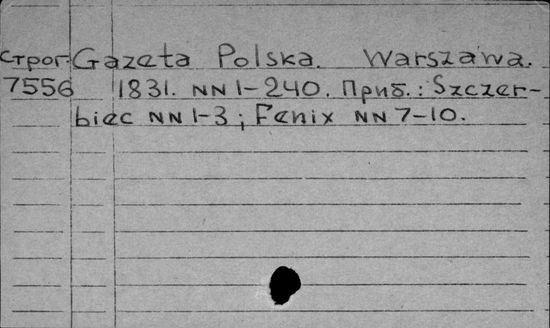 Строг. Gazeta Polska. Warszawa.
7556 1831. NN 1-240. Приб.: Szczer-
biec NN 1-3; Fenix NN 7-10.